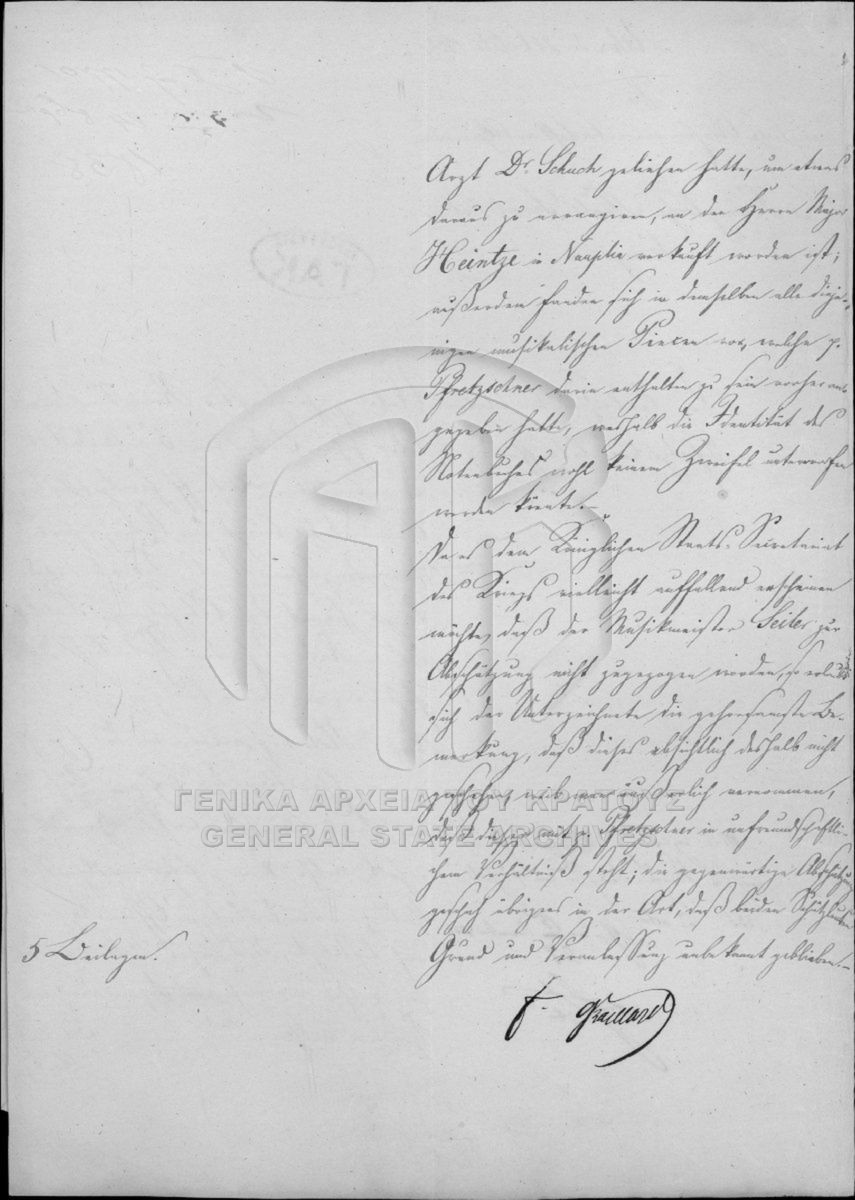 Arzt Dr. Schuch geliehen hatte, um etwas
daraus zu arrangiren, an den Herrn Major
Heintze in Nauplia verkauft worden ist;
außerdem fanden sich in demselben alle dieje-
nigen musikalischen Piecen vor, welche p.
Pfretzschner darin enthalten zu sein vorher an-
gegeben hatte, weshalb die Identität des
Notenbuches wohl keinem Zweifel unterworfen
werden könnte.—
Da es dem Königlichen Staats-Secretariat
des Kriegs vielleicht auffallend erscheinen
möchte, daß der Musikmeister Seiler zur
Abschätzung nicht zugezogen worden, so erlaubt
sich der Unterzeichnete die gehorsamste Be-
merkung, daß dieses absichtlich deshalb nicht
geschehen, weil man vernommen,
daß dieser mit p. Pfretzschner in unfreundschaftli-
chem Verhältniß steht; die gegenwärtige Abschätzung
geschah übrigens in der Art, daß beiden Schätzleuten
Grund und Veranlassung unbekannt geblieben.—
5 Beilagen.
F. Graillard
ΓΕΝΙΚΑ ΑΡΧΕΙΑ ΤΟΥ ΚΡΑΤΟΥΣ
GENERAL STATE ARCHIVES